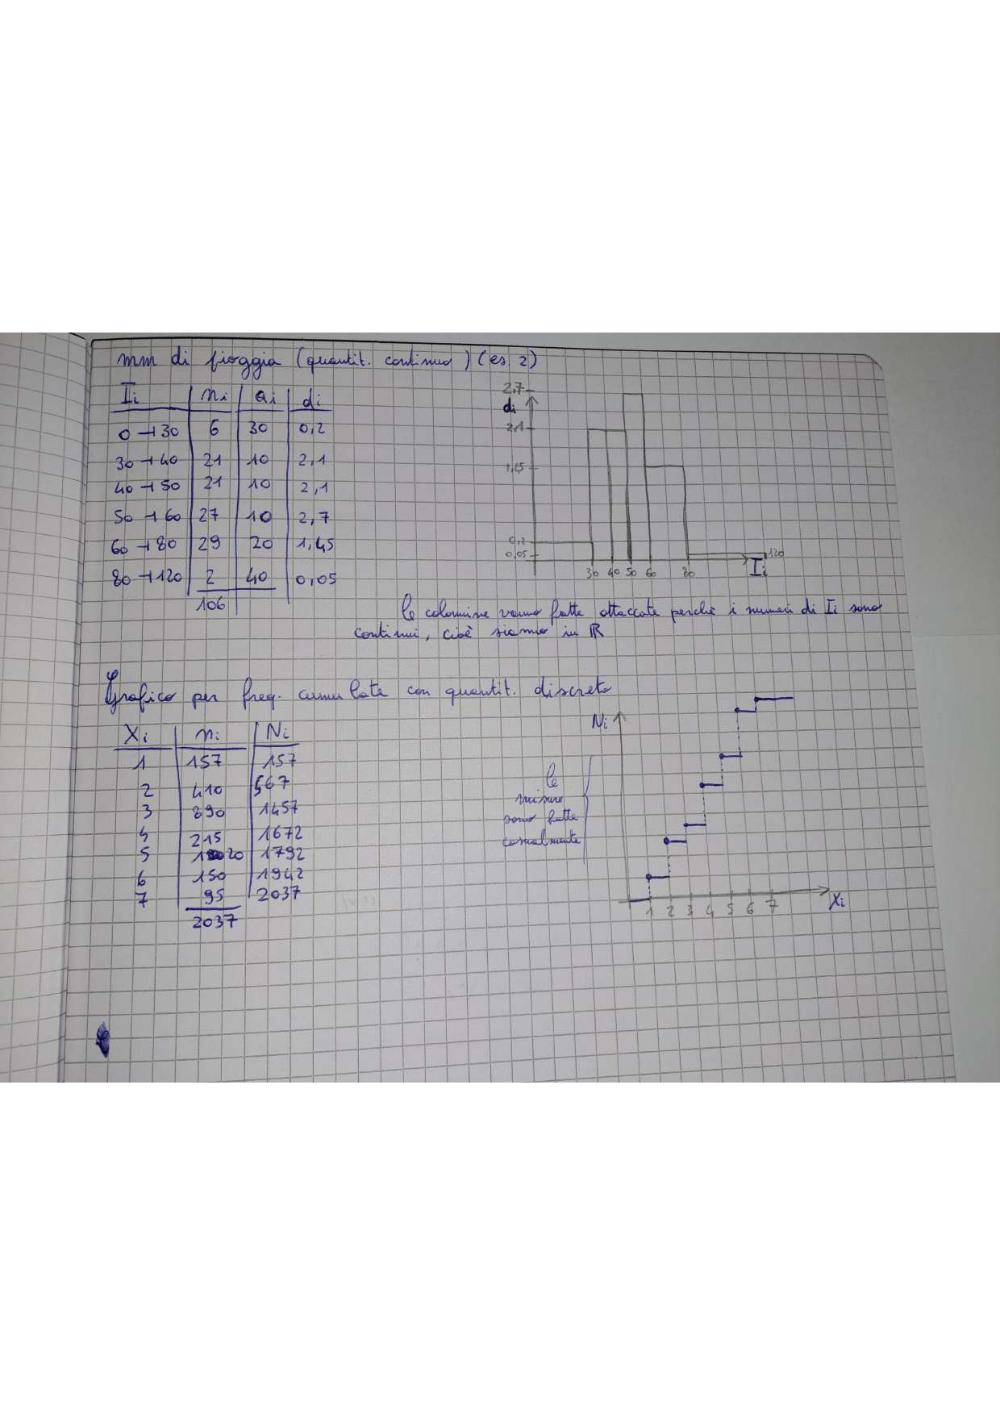 mm di pioggia (quantit. continuo) (es 2)
Ii ni ai di
0⊣30 6 30 0,2
30⊣40 21 10 2,1
40⊣50 21 10 2,1
50⊣60 27 10 2,7
60⊣80 29 20 1,45
80⊣120 2 40 0,05
106
2.7
di
2,1
1,45
0,2
0,05
30 40 50 60 80 Ii 120
le colonnine vanno fatte attaccate perché i numeri di Ii sono
continui, cioè siamo in ℝ
Grafico per freq. cumulate con quantit. discreto
Xi ni Ni
1 157 157
2 410 567
3 890 1457
4 215 1672
5 120 1792
6 150 1942
7 95 2037
2037
Ni
le
misure
sono fatte
casualmente
1 2 3 4 5 6 7 Xi